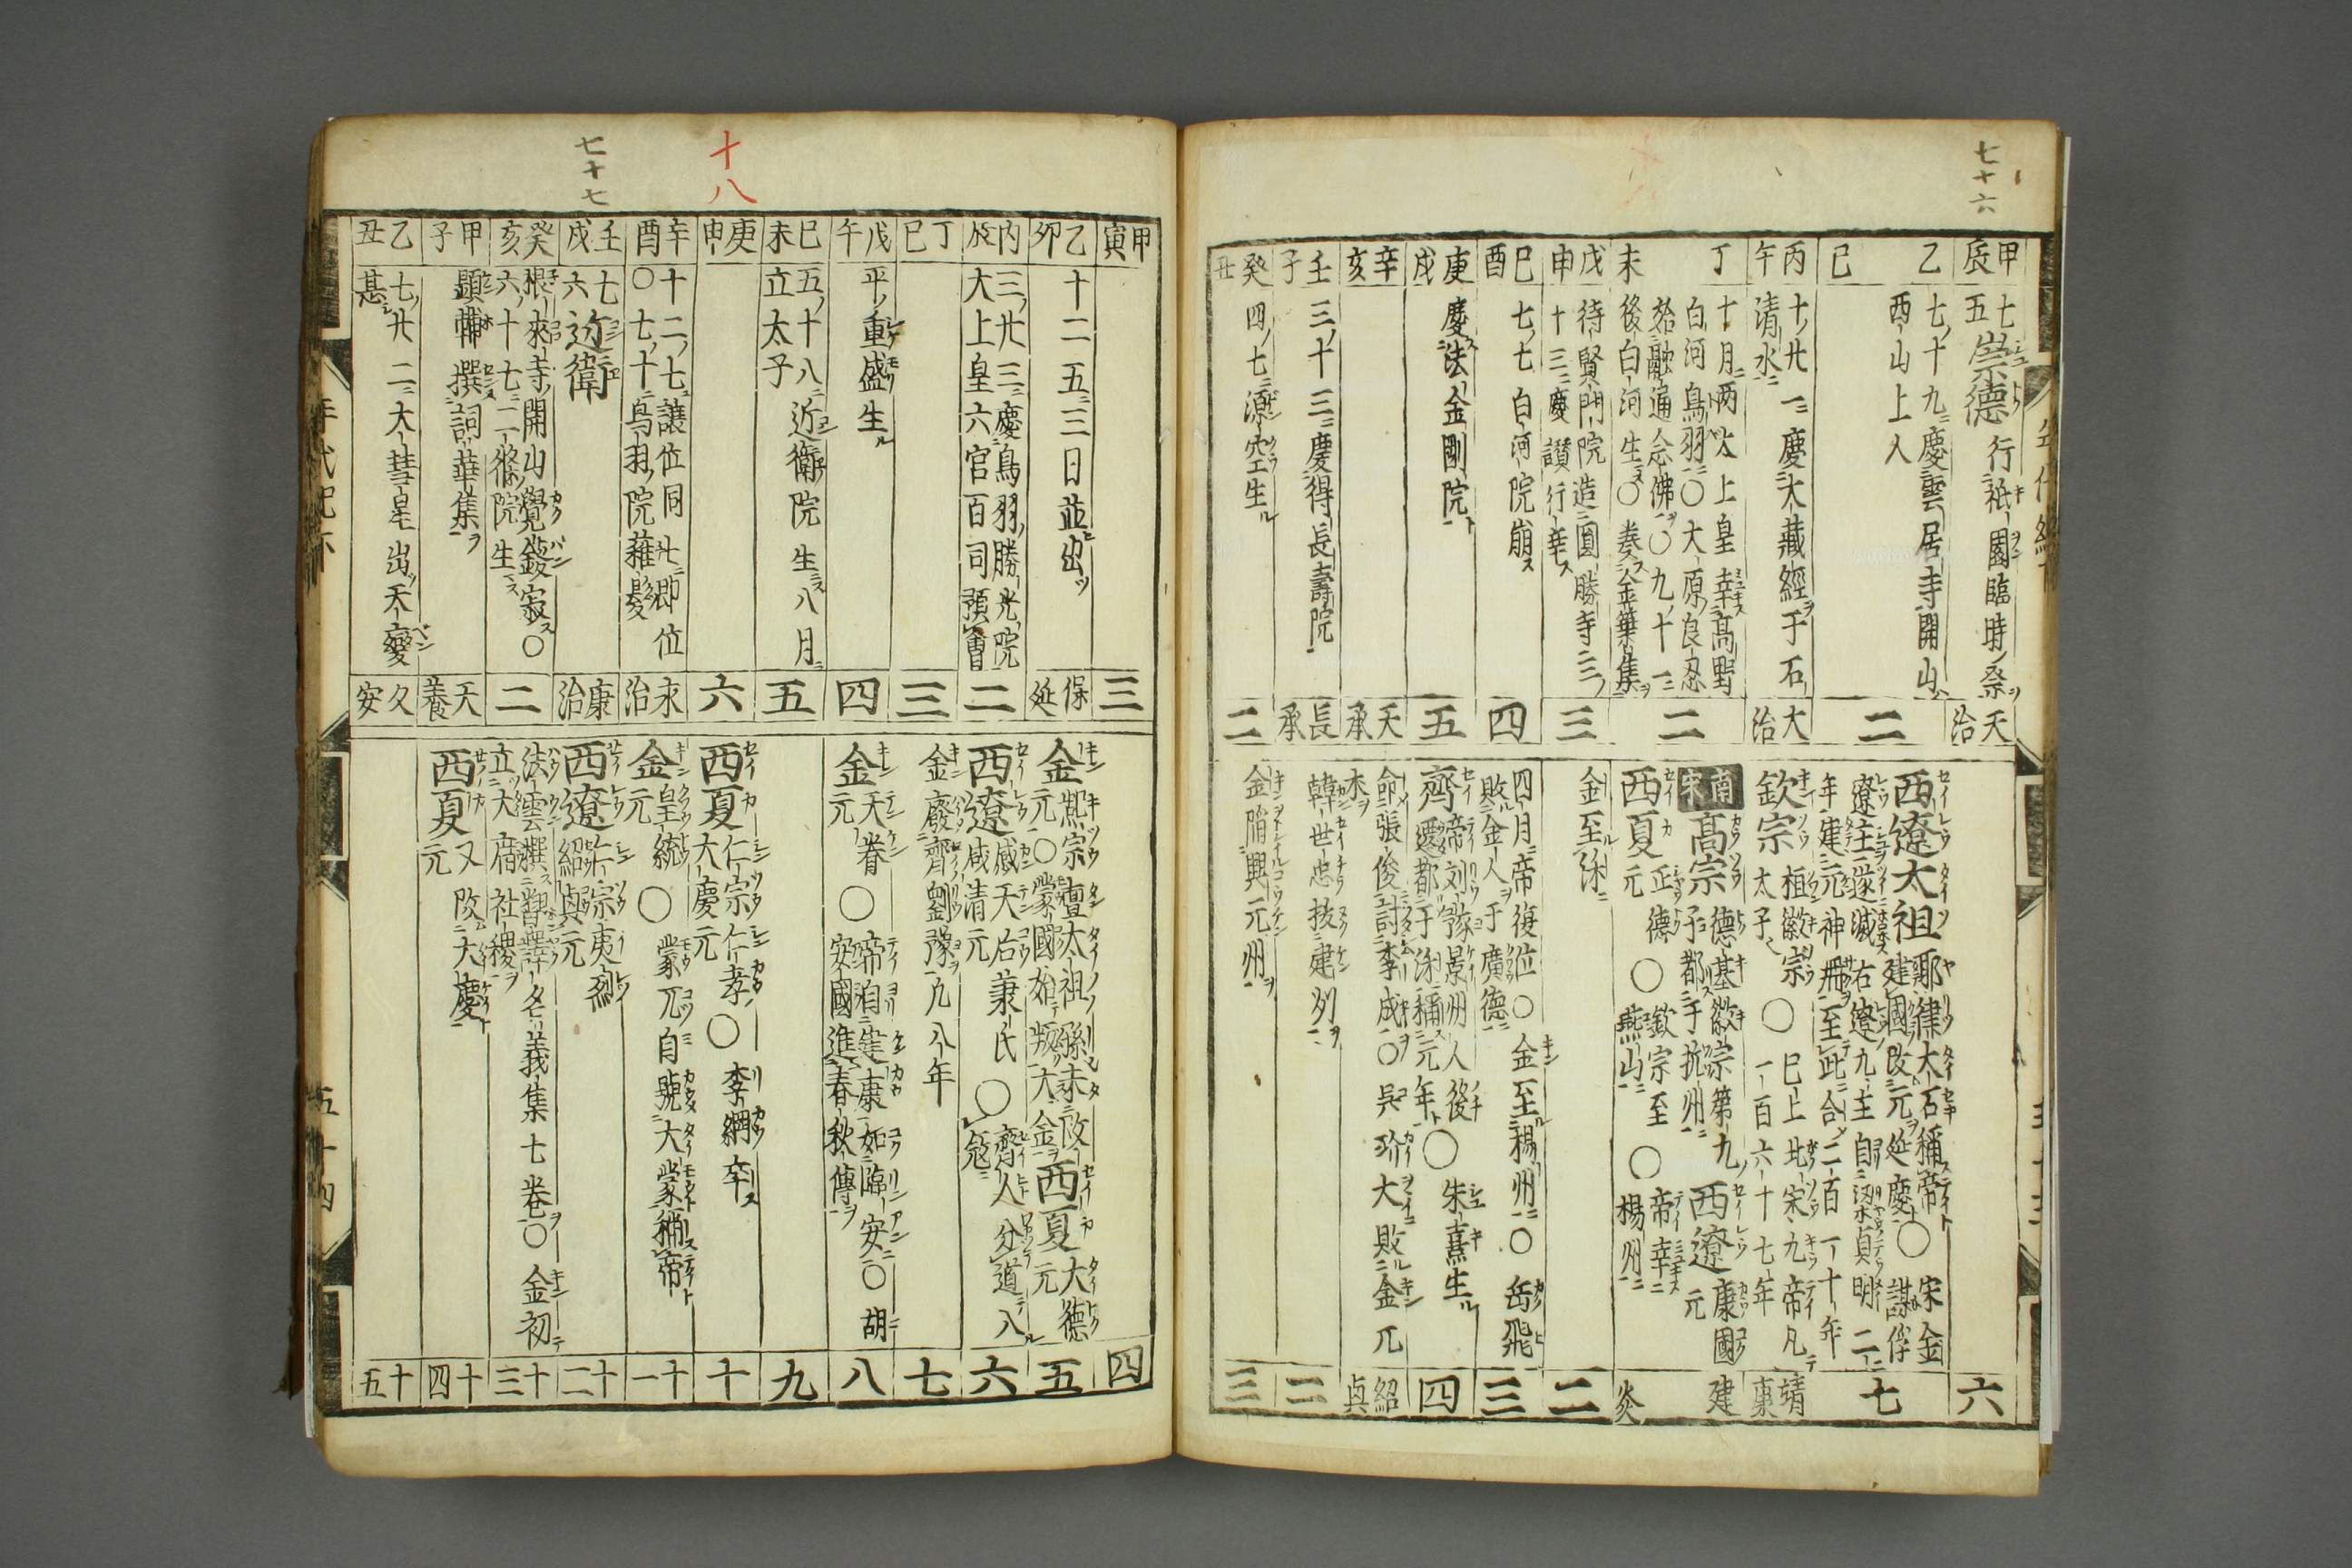 七十六
甲辰
七五崇德行祇園臨時ノ祭
天治
六
乙巳
七ノ十九慶雲居寺開山
西山上人
二
西遼太祖耶律大石稱帝〇宋金謀俘
建國改元延慶
遼主遂滅右遼九主自梁貞明二
年建元神冊至此合二百一十年
七
丙午
十ノ廿一慶大藏經于石
清水
大治
欽宗桓徽宗〇巳上北宋九帝凡
太子一百六十七年
靖康
丁未
十月兩太上皇幸高野
白河鳥羽〇大原良忍
始融通念佛〇九ノ十一
後白河生〇奏金葉集
二
南宋
高宗德基徽宗第九
子都于抗州
西遼康國元
西夏正德元〇欽宗至燕山〇帝幸楊州
建炎
戊申
待賢門院造圓勝寺三ノ
十三慶讃行幸
三
金至汴
二
巳酉
七ノ七白河院崩
四
四月帝復位〇金至楊州〇岳飛
敗金人于廣德
三
庚戌
慶法金剛院
五
齊帝刘豫景州人後〇朱熹生
遷都于汴稱元年
四
辛亥
天承
命張俊討李成〇吳玠大敗金兀
朮
紹興
壬子
三ノ十三慶得長壽院
長承
韓世忠拔建州
二
癸丑
四ノ七源空生
二
金陷興元州
三
七十七
十八
甲寅
三
四
乙卯
十二五三日並出
保延
金熙宗亶太祖孫未改
元〇蒙國始叛大金
西夏大德元
五
丙辰
三ノ廿三慶鳥羽勝光院
大上皇六宮百司預會
二
西遼感天后蕭氏〇齊人分道入
咸清元寇
六
丁巳
三
金廢齊劉豫凡八年
七
戊午
平ノ重盛生
四
金天眷〇帝自建康如臨安〇胡
元安國進春秋傳
八
巳未
五ノ十八近衛院生八月
立太子
五
九
庚申
六
西夏仁宗仁孝〇李綱卒
大慶元
十
辛酉
十二ノ七讓位同廿即位
〇七ノ十鳥羽院薙髮
永治
金皇統〇蒙兀自號大蒙稱帝
元
十一
壬戌
七六近衛
康治
西遼仁宗夷列
紹興元
十二
癸亥
根來寺開山覺鑁寂〇
六ノ十七二條院生
二
法雲撰翻譯名義集七卷〇金初
立大廟社稷
十三
甲子
顕輔撰詞華集
天養
西夏又改大慶
元
十四
乙丑
七ノ廿二大彗星出天變
甚
久安
十五
年代記下
五十四